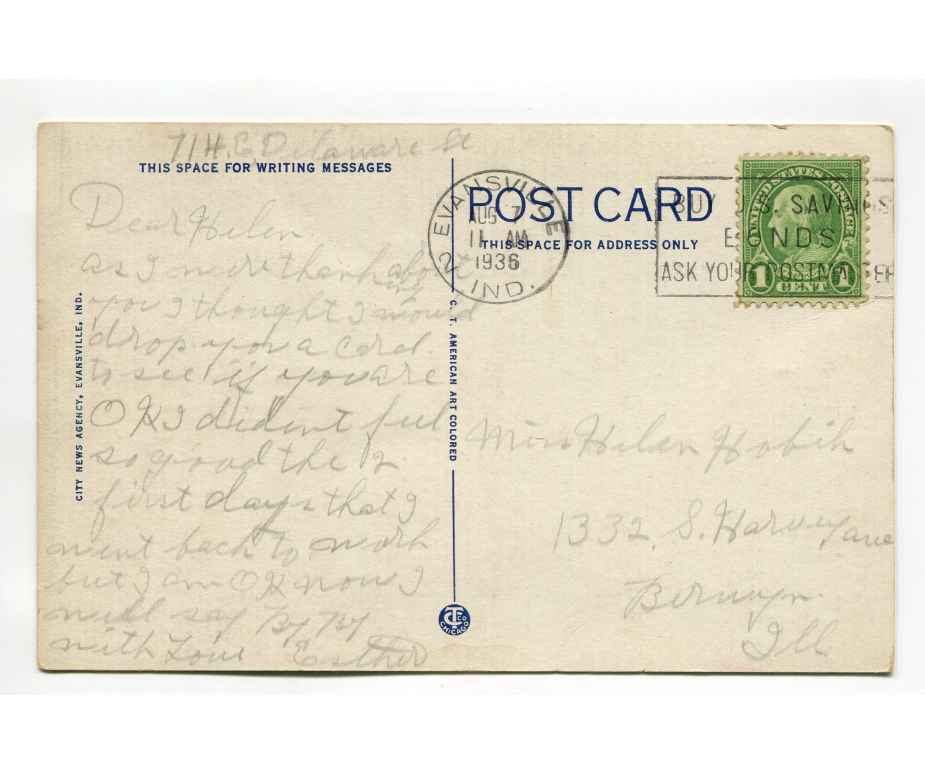 714 E Delaware St
THIS SPACE FOR WRITING MESSAGES
Dear Helen
as I were thinking about
you I thought I would
drop you a card
to see if you are
OK I did int feel
so good the 2
first days that I
went back to work
but I am OK now I
will say By By
with Love Esther
CITY NEWS AGENCY, EVANSVILLE, IND.
C. T. AMERICAN ART COLORED
CTCO
CHICAGO
POST CARD
THIS SPACE FOR ADDRESS ONLY
EVANSVILLE 2
AUG 7
11 AM
1936
IND.
BUY U.S. SAVINGS
BONDS
ASK YOUR POSTMASTER
UNITED STATES POSTAGE
1 1
CENT
Miss Helen
1332 S. Harvey ave
Berwyn
Ill